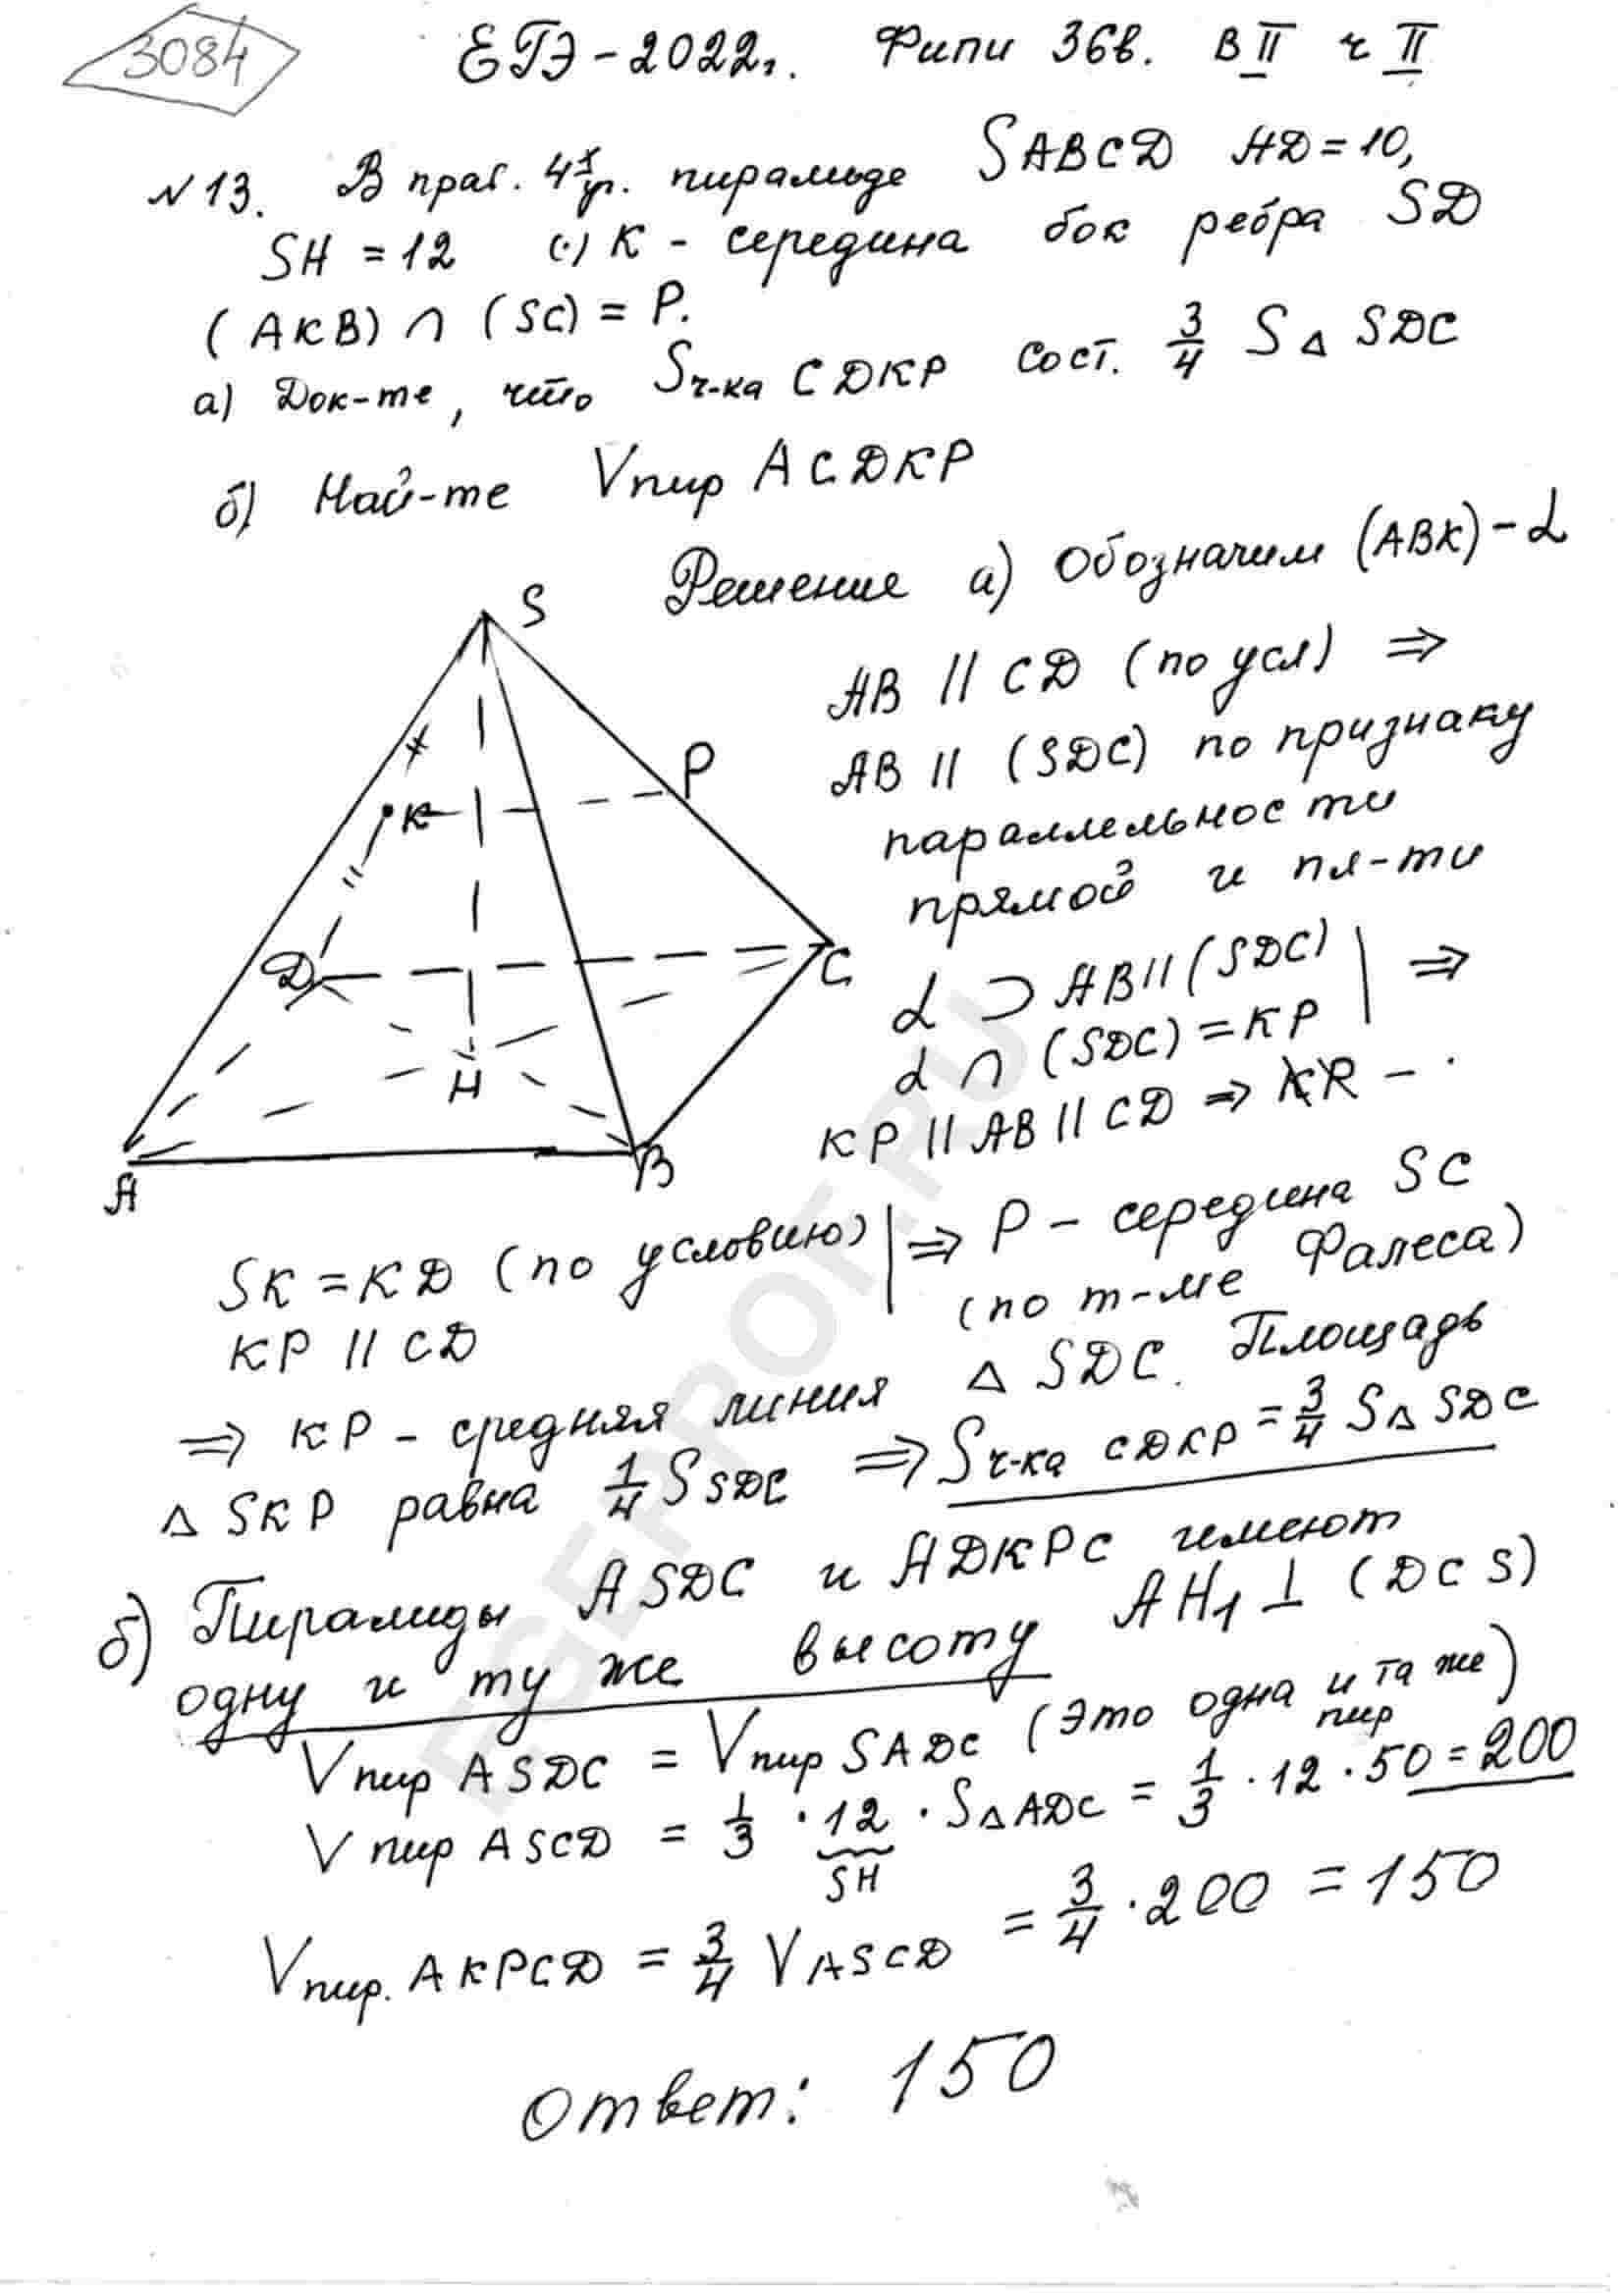 3084
ЕГЭ-2022г. Фипи 36в. В II ч II
№13. В прав. 4х уг. пирамиде SABCD AD=10,
SH = 12 (·) K - середина бок ребра SD
(AKB) ∩ (SC) = P.
а) Док-те, что Sч-ка CDKP сост. 3/4 S△ SDC
б) Най-те Vпир ACDKP
Решение а) Обозначим (ABK) - α
AB || CD (по усл) ⇒
AB || (SDC) по признаку
параллельности
прямой и пл-ти
α ⊃ AB || (SDC) | ⇒
α ∩ (SDC) = KP
KP || AB || CD ⇒ KR - .
S
P
K
D
C
H
A
B
SK = KD (по условию) | ⇒ P - середина SC
KP || CD (по т-ме Фалеса)
⇒ KP - средняя линия △ SDC. Площадь
△ SKP равна 1/4 S SDC ⇒ Sч-ка CDKP = 3/4 S△ SDC
б) Пирамиды ASDC и ADKPC имеют
одну и ту же высоту AH1 ⊥ (DCS)
Vпир ASDC = Vпир SADC (это одна и та же пир)
Vпир ASCD = 1/3 · 12 · S△ADC = 1/3 · 12 · 50 = 200
SH
Vпир. AKPCD = 3/4 V ASCD = 3/4 · 200 = 150
Ответ: 150
EGEPROF.RU